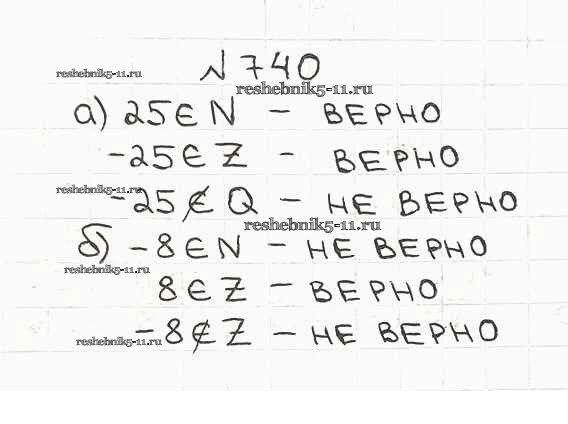 №740
reshebnik5-11.ru
reshebnik5-11.ru
а) 25 ∈ N – ВЕРНО
-25 ∈ Z – ВЕРНО
reshebnik5-11.ru
-25 ∉ Q – НЕ ВЕРНО
reshebnik5-11.ru
б) -8 ∈ N – НЕ ВЕРНО
reshebnik5-11.ru
8 ∈ Z – ВЕРНО
-8 ∉ Z – НЕ ВЕРНО
reshebnik5-11.ru